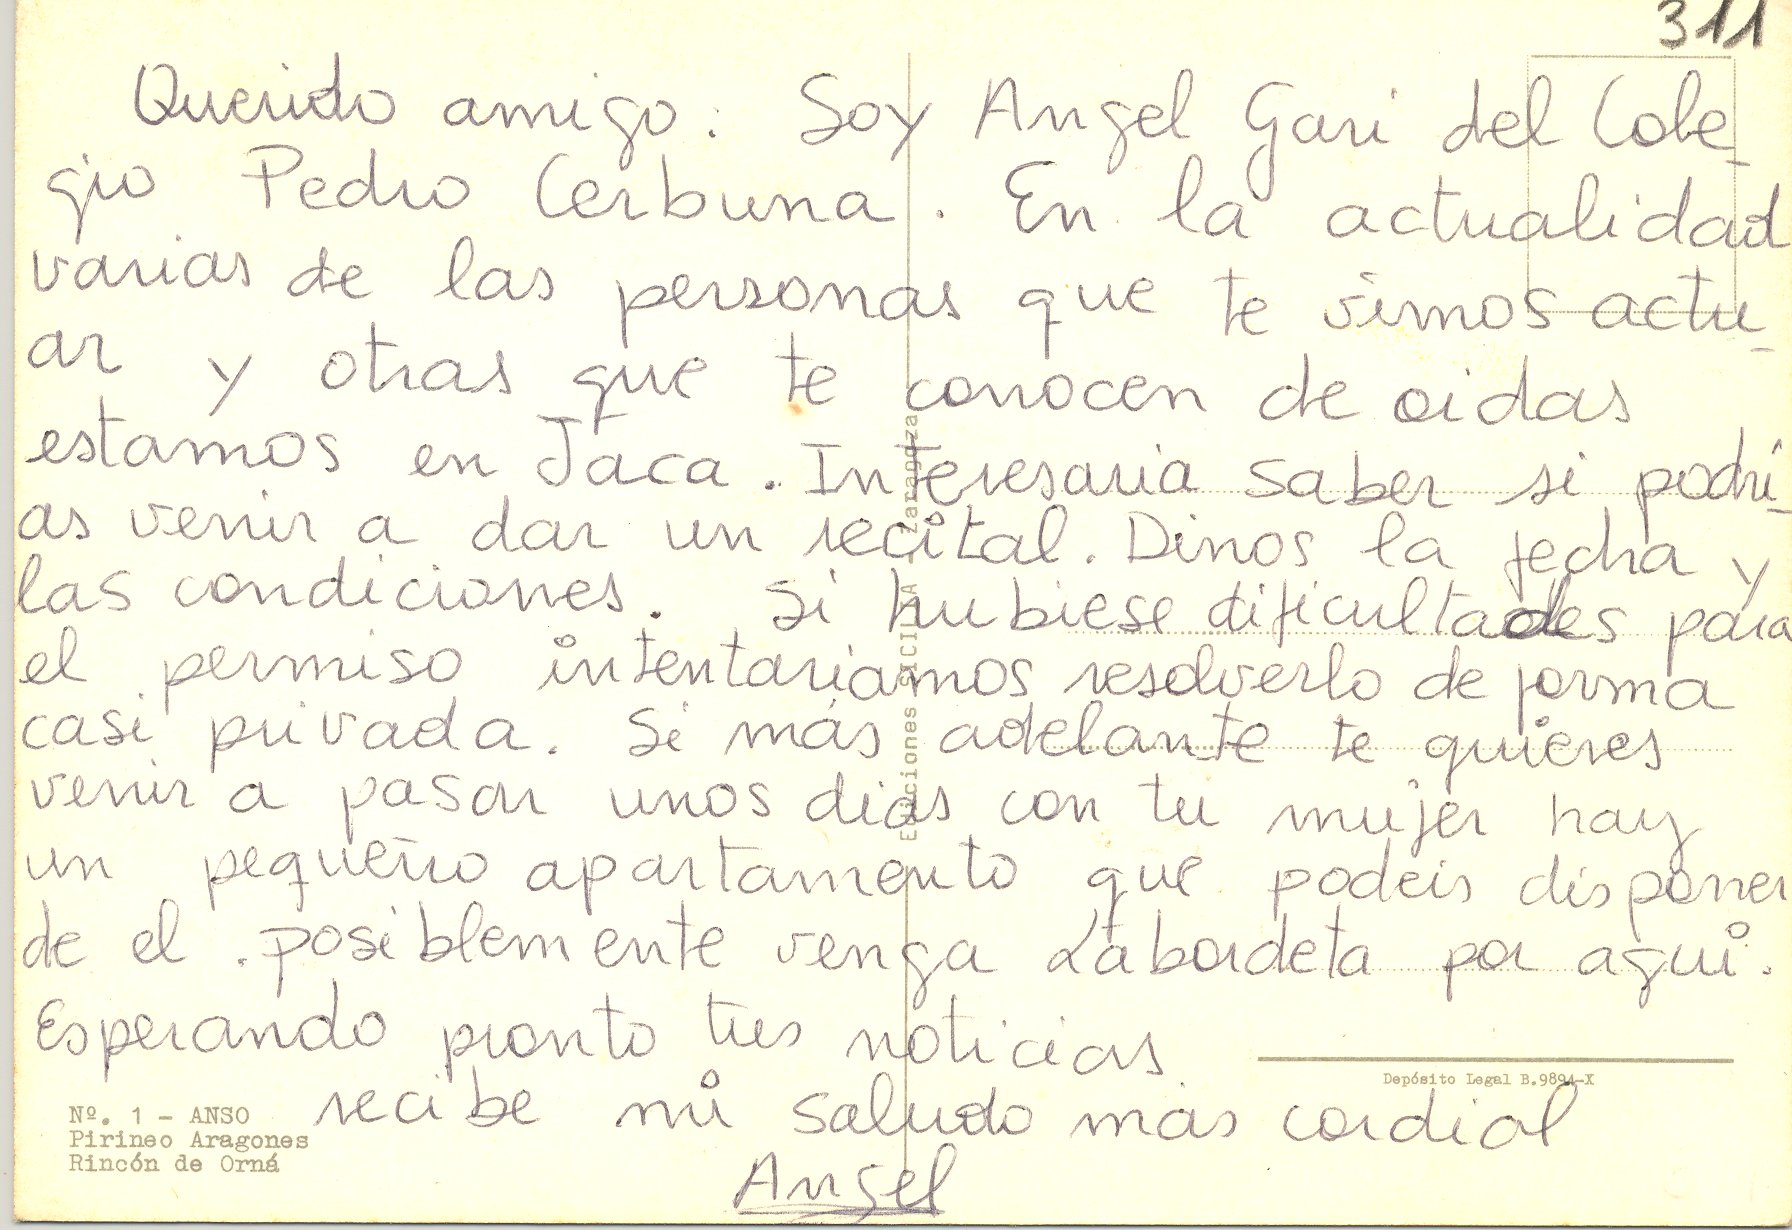 311
Querido amigo: Soy Angel Gari del Cole-
gio Pedro Cerbuna. En la actualidad
varias de las personas que te vimos actu-
ar y otras que te conocen de oidas
estamos en Jaca. Interesaria saber si podrí-
as venir a dar un recital. Dinos la fecha y
las condiciones. Si hubiese dificultades para
el permiso intentariamos resolverlo de forma
casi privada. Si más adelante te quieres
venir a pasar unos dias con tu mujer hay
un pequeño apartamento que podeis disponer
de el. posiblemente venga Labordeta por aqui.
Esperando pronto tus noticias
recibe mi saludo mas cordial
Angel
Ediciones SICILIA - Zaragoza
Depósito Legal B.9894-X
Nº. 1 - ANSO
Pirineo Aragones
Rincón de Orná